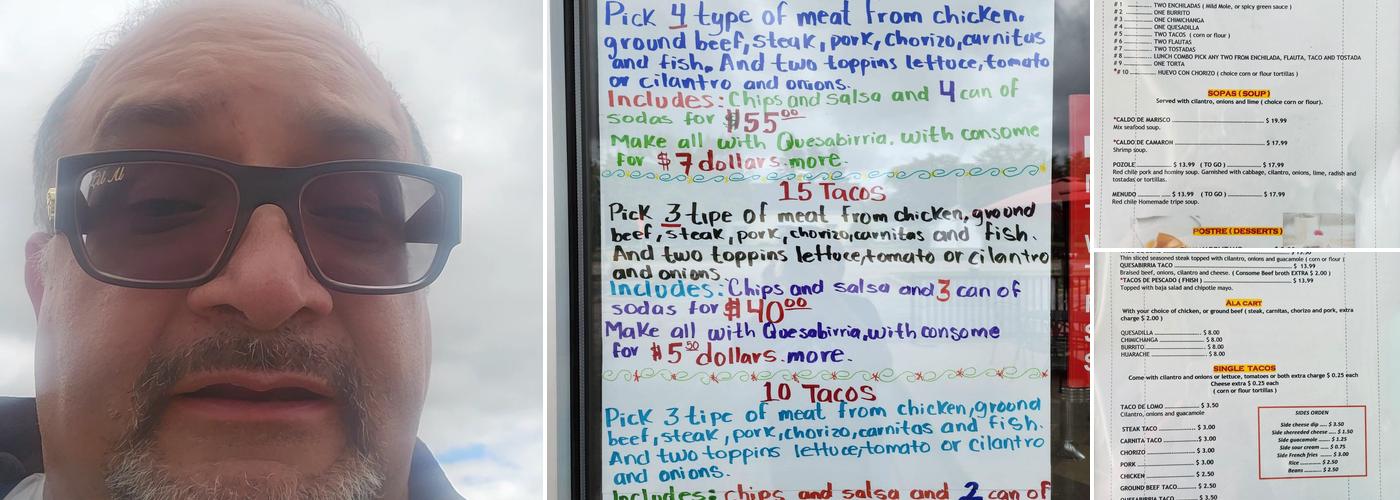 Pick 4 type of meat from chicken,
ground beef, steak, pork, chorizo, carnitas
and fish. And two toppins lettuce, tomato
or cilantro and onions.
Includes: Chips and salsa and 4 can of
sodas for $55⁰⁰
Make all with Quesabirria, with consome
for $7 dollars more.
15 Tacos
Pick 3 tipe of meat from chicken, ground
beef, steak, pork, chorizo, carnitas and fish.
And two toppins lettuce, tomato or cilantro
and onions.
Includes: Chips and salsa and 3 can of
sodas for $40⁰⁰
Make all with Quesabirria, with consome
for $5⁵⁰ dollars more.
10 Tacos
Pick 3 tipe of meat from chicken, ground
beef, steak, pork, chorizo, carnitas and fish.
And two toppins lettuce, tomato or cilantro
and onions.
Includes: chips and salsa and 2 can of
# 1 TWO ENCHILADAS ( Mild Mole, or spicy green sauce )
# 2 ONE BURRITO
# 3 ONE CHIMICHANGA
# 4 ONE QUESADILLA
# 5 TWO TACOS ( corn or flour )
# 6 TWO FLAUTAS
# 7 TWO TOSTADAS
# 8 LUNCH COMBO PICK ANY TWO FROM ENCHILADA, FLAUTA, TACO AND TOSTADA
# 9 ONE TORTA
*# 10 HUEVO CON CHORIZO ( choice corn or flour tortillas )
SOPAS ( SOUP )
Served with cilantro, onions and lime ( choice corn or flour).
*CALDO DE MARISCO $ 19.99
Mix seafood soup.
*CALDO DE CAMARON $ 17.99
Shrimp soup.
POZOLE $ 13.99 ( TO GO ) $ 17.99
Red chile pork and hominy soup. Garnished with cabbage, cilantro, onions, lime, radish and
tostadas or tortillas.
MENUDO $ 13.99 ( TO GO ) $ 17.99
Red chile Homemade tripe soup.
POSTRE ( DESSERTS )
Thin sliced seasoned steak topped with cilantro, onions and guacamole ( corn or flour )
QUESABIRRIA TACO $ 13.99
Braised beef, onions, cilantro and cheese. ( Consome Beef broth EXTRA $ 2.00 )
*TACOS DE PESCADO ( FHISH ) $ 13.99
Topped with baja salad and chipotle mayo.
ALA CART
With your choice of chicken, or ground beef ( steak, carnitas, chorizo and pork, extra
charge $ 2.00 )
QUESADILLA $ 8.00
CHIMICHANGA $ 8.00
BURRITO $ 8.00
HUARACHE $ 8.00
SINGLE TACOS
Come with cilantro and onions or lettuce, tomatoes or both extra charge $ 0.25 each
Cheese extra $ 0.25 each
( corn or flour tortillas )
TACO DE LOMO $ 3.50
Cilantro, onions and guacamole
STEAK TACO $ 3.00
CARNITA TACO $ 3.00
CHORIZO $ 3.00
PORK $ 3.00
CHICKEN $ 2.50
GROUND BEEF TACO $ 2.50
QUESABIRRIA TACO
SIDES ORDEN
Side cheese dip $ 3.50
Side shereeded cheese $ 1.50
Side guacamole $ 1.25
Side sour cream $ 0.75
Side French fries $ 3.00
Rice $ 2.50
Beans $ 2.50